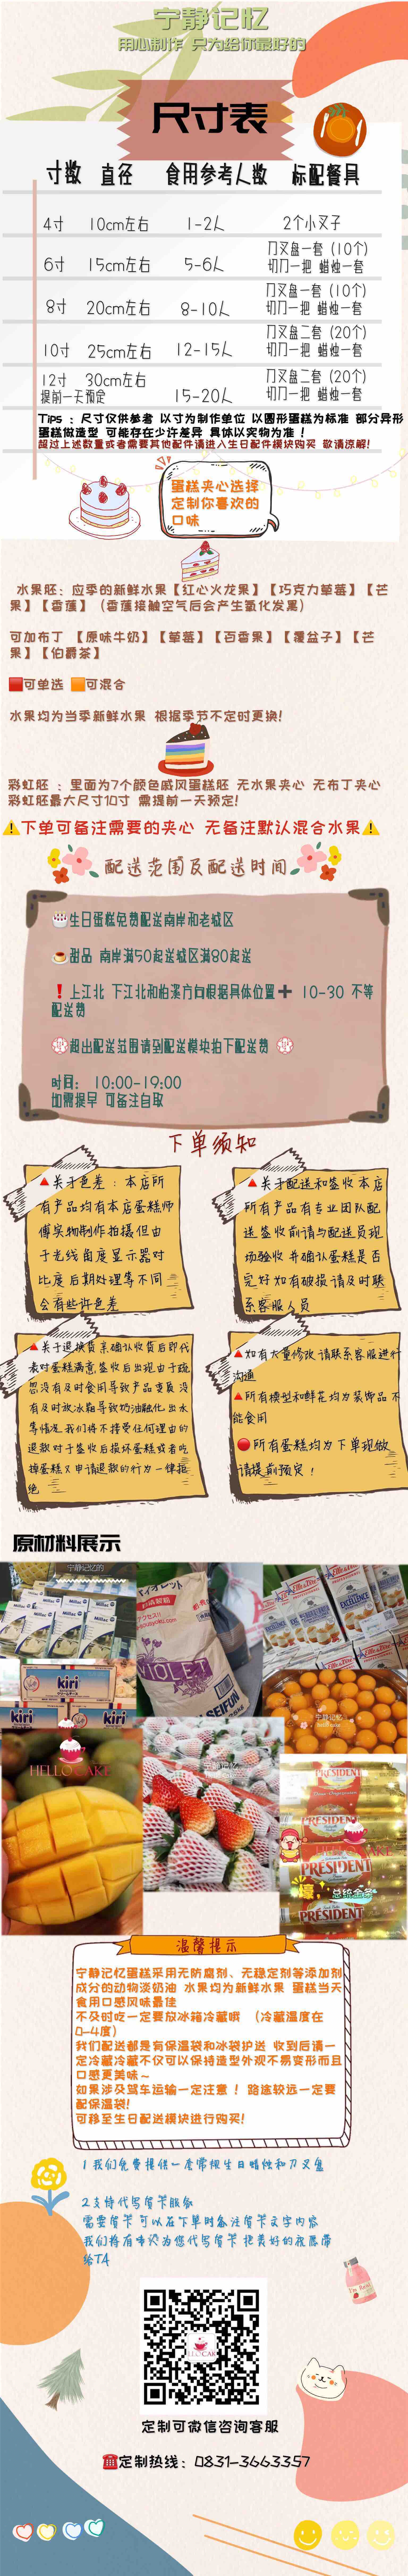 宁静记忆
用心制作 只为给你最好的
尺寸表
寸数 直径 食用参考人数 标配餐具
4寸 10cm左右 1-2人 2个小叉子
6寸 15cm左右 5-6人 刀叉盘一套（10个）
切刀一把 蜡烛一套
8寸 20cm左右 8-10人 刀叉盘一套（10个）
切刀一把 蜡烛一套
10寸 25cm左右 12-15人 刀叉盘二套（20个）
切刀一把 蜡烛一套
12寸 30cm左右 15-20人 刀叉盘二套（20个）
提前一天预定 切刀一把 蜡烛一套
Tips：尺寸仅供参考 以寸为制作单位 以圆形蛋糕为标准 部分异形
蛋糕做造型 可能存在少许差异 具体以实物为准！
超过上述数量或者需要其他配件请进入生日配件模块购买 敬请谅解！
蛋糕夹心选择
定制你喜欢的
口味
水果胚：应季的新鲜水果【红心火龙果】【巧克力草莓】【芒
果】【香蕉】（香蕉接触空气后会产生氧化发黑）
可加布丁 【原味牛奶】【草莓】【百香果】【覆盆子】【芒
果】【伯爵茶】
🟥可单选 🟧可混合
水果均为当季新鲜水果 根据季节不定时更换！
彩虹胚 ：里面为7个颜色戚风蛋糕胚 无水果夹心 无布丁夹心
彩虹胚最大尺寸10寸 需提前一天预定！
⚠️下单可备注需要的夹心 无备注默认混合水果⚠️
配送范围及配送时间
🎂生日蛋糕免费配送南岸和老城区
🍮甜品 南岸满50起送城区满80起送
❗上江北 下江北和柏溪方向根据具体位置➕ 10-30 不等
配送费
💮超出配送范围请到配送模块拍下配送费 💮
时间： 10:00-19:00
如需提早 可备注自取
下单须知
🔺关于色差：本店所
有产品均有本店蛋糕师
傅实物制作拍摄但由
于光线角度显示器对
比度后期处理等不同
会有些许色差
🔺关于配送和签收本店
所有产品有专业团队配
送签收前请与配送员现
场验收并确认蛋糕是否
完好如有破损请及时联
系客服人员
🔺关于退换货亲确认收货后即代
表对蛋糕满意签收后出现由于疏
忽没有及时食用导致产品变质没
有及时放冰箱导致奶油融化出水
等情况我们将不接受任何理由的
退款对于签收后损坏蛋糕或者吃
掉蛋糕又申请退款的行为一律拒
绝
🔺如有大量修改请联系客服进行
沟通
🔺所有模型和鲜花均为装饰品不
能食用
🔴所有蛋糕均为下单现做
请提前预定！
原材料展示
宁静记忆的
Millac
kiri
kiri
kiri
VIOLET
SEIFUN
Elle&Vire
EXCELLENCE
宁静记忆
HELLO CAKE
PRESIDENT
PRESIDENT
PRESIDENT
PRESIDENT
总统金奖
温馨提示
宁静记忆蛋糕采用无防腐剂、无稳定剂等添加剂
成分的动物淡奶油 水果均为新鲜水果 蛋糕当天
食用口感风味最佳
不及时吃一定要放冰箱冷藏哦 （冷藏温度在
0-4度）
我们配送都是有保温袋和冰袋护送 收到后请一
定冷藏冷藏不仅可以保持造型外观不易变形而且
口感更美味～
如果涉及驾车运输一定注意！路途较远一定要
配保温袋！
可移至生日配送模块进行购买！
1 我们免费提供一套常规生日蜡烛和刀叉盘
2 支持代写贺卡服务
需要贺卡 可以在下单时备注贺卡文字内容
我们将有专人为您代写贺卡 把美好的祝愿带
给TA
定制可微信咨询客服
☎️定制热线：0831-3663357